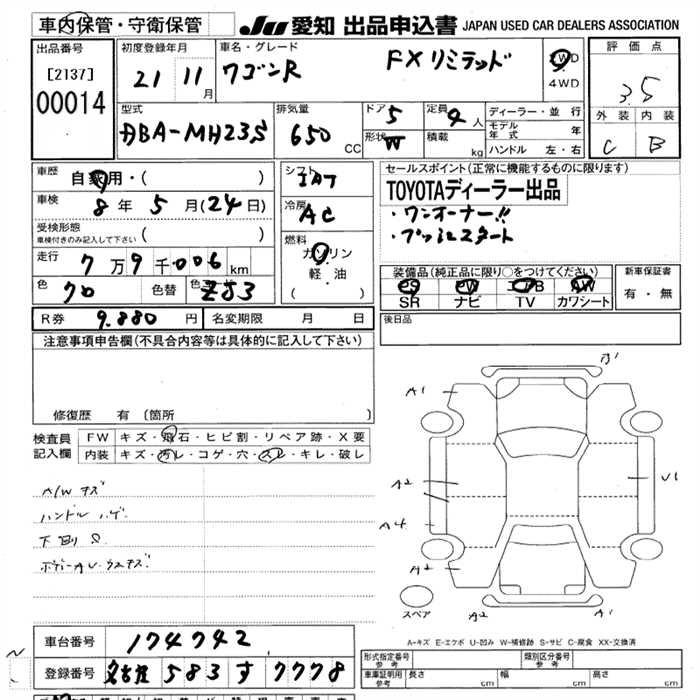 車内保管・守衛保管
JU 愛知 出品申込書 JAPAN USED CAR DEALERS ASSOCIATION
出品番号
[2137]
00014
初度登録年月
21 11月
車名・グレード
ワゴンR FXリミテッド
2WD
・
4WD
評価点
3.5
外装 内装
C B
型式
DBA-MH23S
排気量
650 CC
ドア
5
形状
W
定員
4人
積載
kg
ディーラー・並行
モデル年式 年
ハンドル 左・右
車歴
自家用・( )
車検
8年 5月(24日)
受検形態
車検付きのみ記入して下さい ( )
走行
7万9千006km
色
クロ
色替
色コード
ZJ3
シフト
IAT
冷房
AC
燃料
ガソリン
・
軽・油
( )
セールスポイント(正常に機能するものに限ります)
TOYOTAディーラー出品
・ワンオーナー!!
・プッシュスタート
装備品(純正品に限り○をつけてください)
PS PW エアB AW
SR ナビ TV カワシート
新車保証書
有・無
R券 9.880円
名変期限 月 日
後日品
注意事項申告欄(不具合内容等は具体的に記入して下さい)
修復歴 有 〔箇所
検査員記入欄
FW キズ・飛石・ヒビ割・リペア跡・X要
内装 キズ・汚レ・コゲ・穴・スレ・キレ・破レ
A/W キズ
ハンドル ハゲ
下回り S
ボデーAU・ウスキズ
B'
A1
A2
A4
A2
U1
A2
A1
スペア
A-キズ E-エクボ U-凹み W-補修跡 S-サビ C-腐食 XX-交換済
車台番号 174742
登録番号 名古屋 583 す 7778
形式指定番号
参考
類別区分番号
参考
車庫証明用
参考
長さ cm
幅 cm
高さ cm